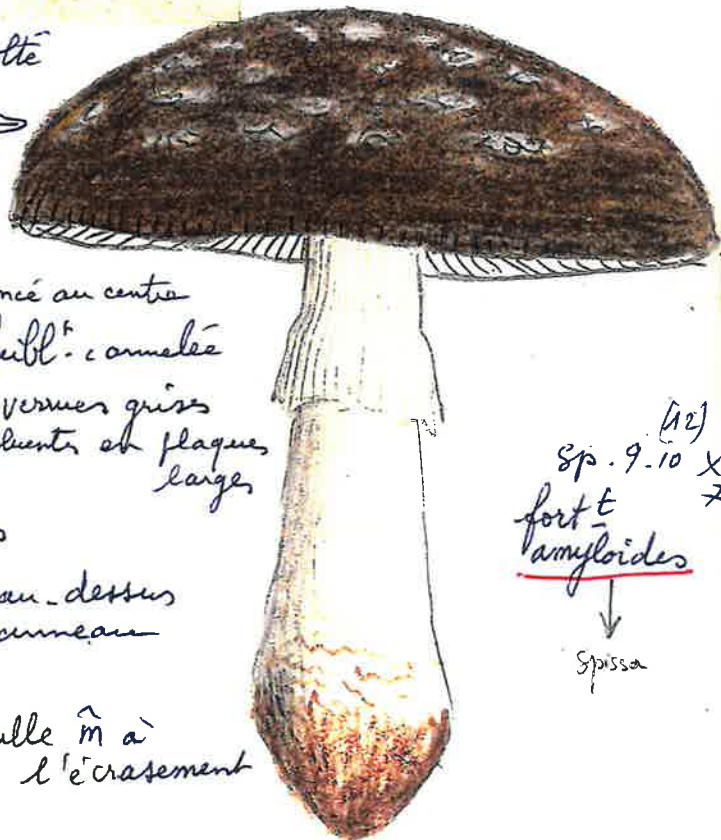 lté
ncé au centre
ubl.t cannelée
verrues grises
luentes en plaques
larges
au-dessus
anneau
ulle m̂ à
l'écrasement
(12)
Sp. 9-10 X
fort-t
amyloïdes
spissa